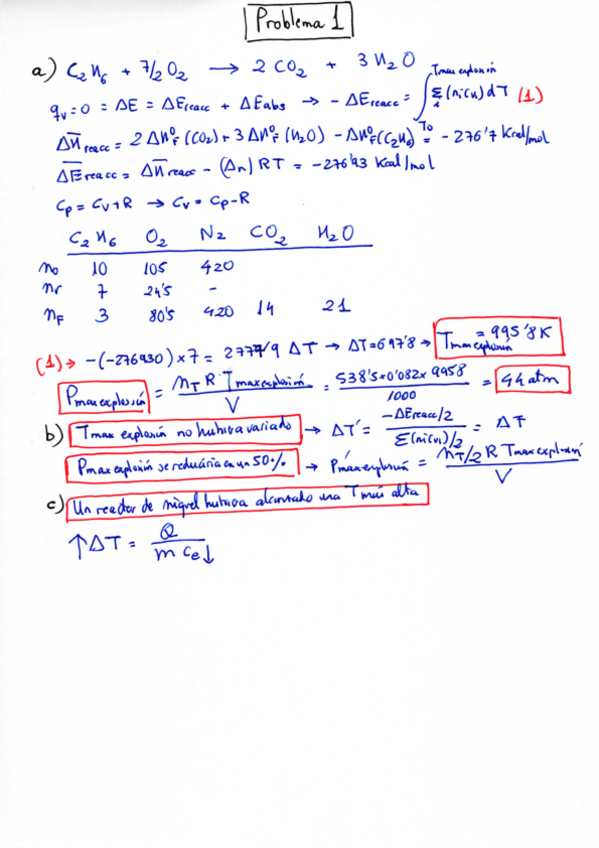 Problema 1
a) C₂H₆ + 7/2 O₂ → 2 CO₂ + 3 H₂O
qv = 0 = ΔE = ΔEreacc + ΔEabs → - ΔEreacc = ∫ To Tmax explosión Σi (ni cvi) dT (1)
ΔHreacc = 2 ΔH°F (CO₂) + 3 ΔH°F (H₂O) - ΔH°F (C₂H₆) = - 276'7 Kcal/mol
ΔEreacc = ΔHreacc - (Δn) RT = -276'93 Kcal/mol
Cp = Cv + R → Cv = Cp - R
C₂H₆ O₂ N₂ CO₂ H₂O
no 10 105 420
nr 7 24'5 -
nF 3 80'5 420 14 21
(1) → -(-276930) × 7 = 2777'9 ΔT → ΔT = 697'8 → Tmax explosión = 995'8 K
Pmax explosión = nT R Tmax explosión / V = 538'5 × 0'082 × 995'8 / 1000 = 44 atm
b) Tmax explosión no hubiera variado → ΔT' = -ΔEreacc/2 / Σ(ni cvi)/2 = ΔT
Pmax explosión se reduciría en un 50% → P'max explosión = nT/2 R Tmax explosión / V
c) Un reactor de níquel hubiera alcanzado una T más alta
↑ΔT = Q / m ce↓